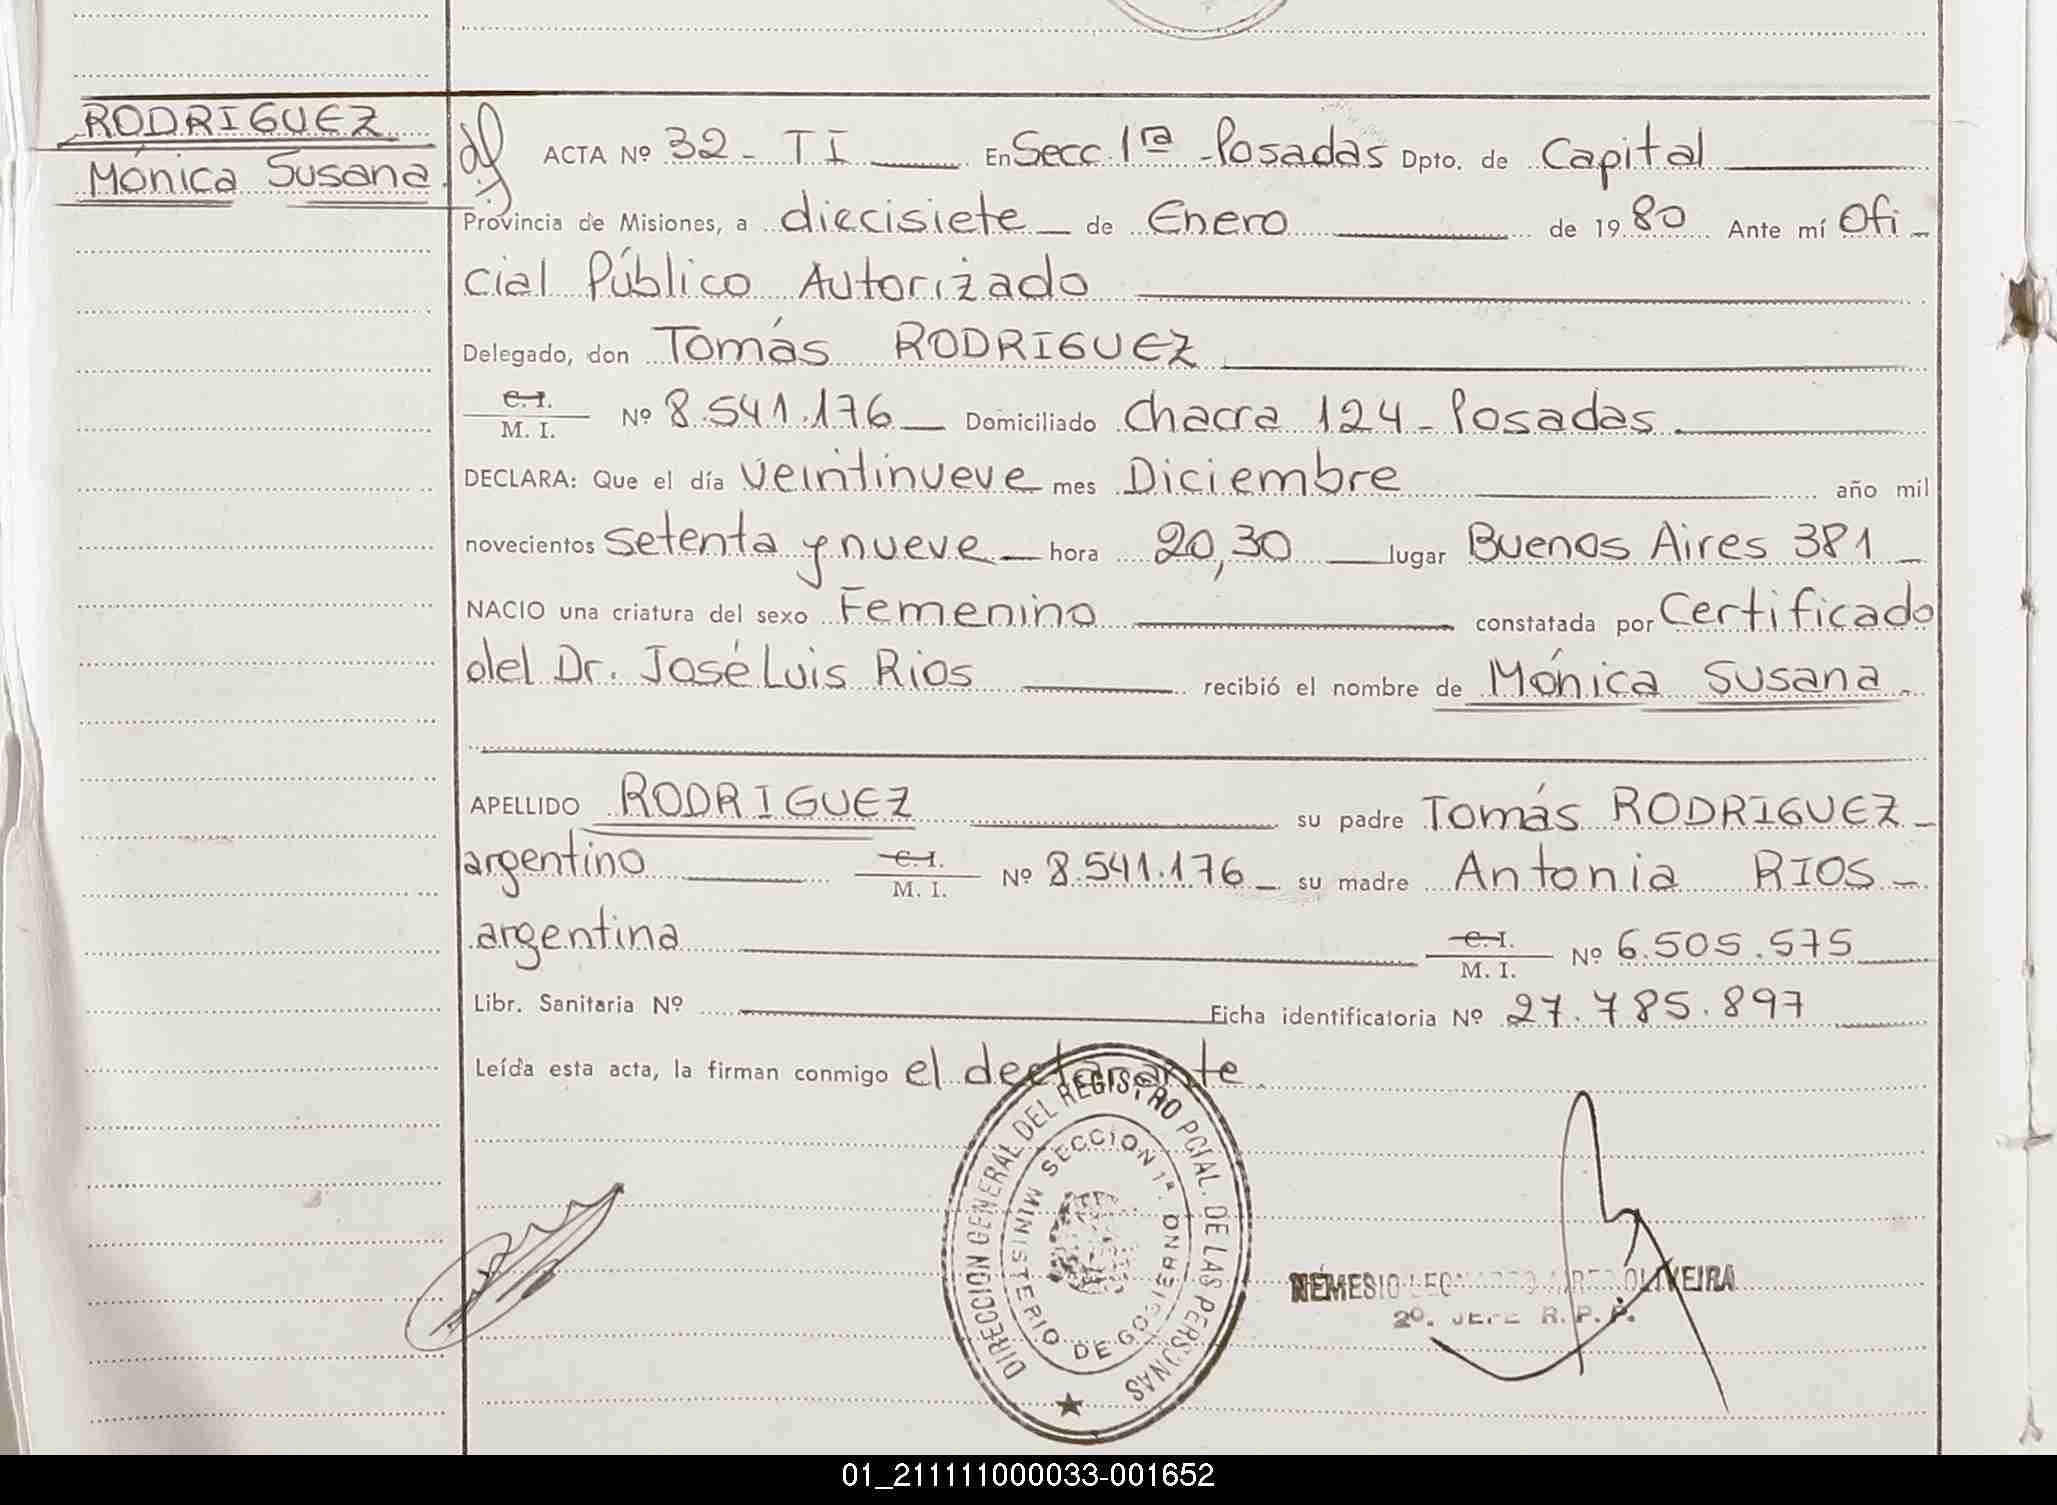 RODRIGUEZ
Mónica Susana
ACTA Nº 32 - TI En Secc 1ª - Posadas Dpto. de Capital
Provincia de Misiones, a diecisiete de Enero de 1980 Ante mí Ofi-
cial Público Autorizado
Delegado, don Tomás RODRIGUEZ
C. I.
M. I. Nº 8.541.176 Domiciliado Chacra 124 - Posadas
DECLARA: Que el día veintinueve mes Diciembre año mil
novecientos setenta y nueve hora 20,30 lugar Buenos Aires 381
NACIO una criatura del sexo Femenino constatada por Certificado
del Dr. José Luis Rios recibió el nombre de Mónica Susana
APELLIDO RODRIGUEZ su padre Tomás RODRIGUEZ
argentino C. I. M. I. Nº 8.541.176 su madre Antonia RIOS
argentina C. I. M. I. Nº 6.505.575
Libr. Sanitaria Nº Ficha identificatoria Nº 27.785.897
Leída esta acta, la firman conmigo el declarante.
DIRECCION GENERAL DEL REGISTRO PCIAL. DE LAS PERSONAS
MINISTERIO DE GOBIERNO
SECCION 1ª.
NEMESIO OLIVEIRA
2º. JEFE R. P. P.
01_211111000033-001652